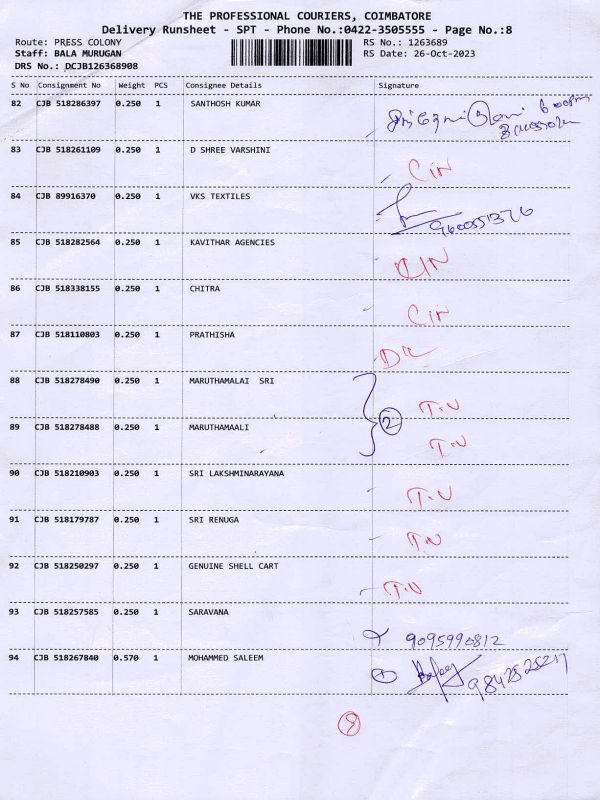 THE PROFESSIONAL COURIERS, COIMBATORE
Delivery Runsheet - SPT - Phone No.:0422-3505555 - Page No.:8
Route: PRESS COLONY RS No.: 1263689
Staff: BALA MURUGAN RS Date: 26-Oct-2023
DRS No.: DCJB126368908
S No Consignment No Weight PCS Consignee Details Signature
82 CJB 518286397 0.250 1 SANTHOSH KUMAR
83 CJB 518261109 0.250 1 D SHREE VARSHINI CIN
84 CJB 89916370 0.250 1 VKS TEXTILES
85 CJB 518282564 0.250 1 KAVITHAR AGENCIES CIN
86 CJB 518338155 0.250 1 CHITRA CIN
87 CJB 518110803 0.250 1 PRATHISHA
88 CJB 518278490 0.250 1 MARUTHAMALAI SRI T.N
2
89 CJB 518278488 0.250 1 MARUTHAMAALI T.N
90 CJB 518210903 0.250 1 SRI LAKSHMINARAYANA T.N
91 CJB 518179787 0.250 1 SRI RENUGA T.N
92 CJB 518250297 0.250 1 GENUINE SHELL CART T.N
93 CJB 518257585 0.250 1 SARAVANA 9095990812
94 CJB 518267840 0.570 1 MOHAMMED SALEEM
9